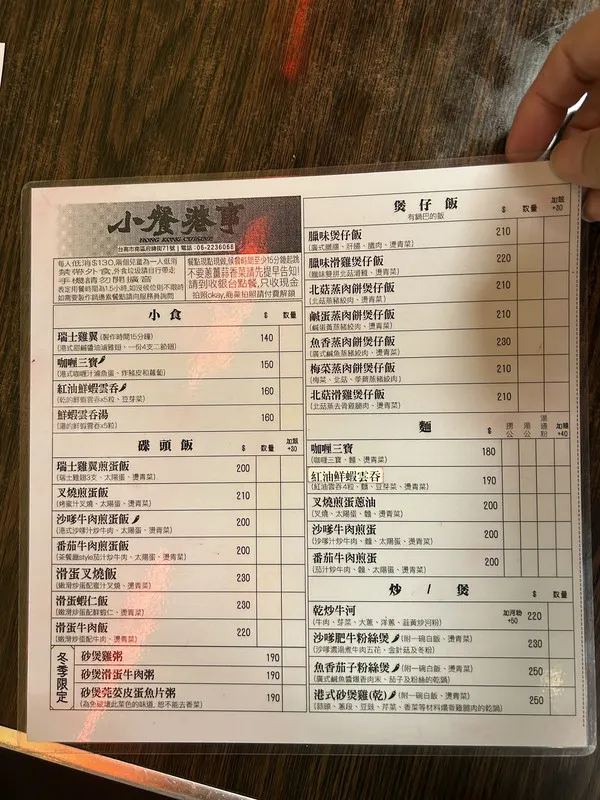 小餐港事
HONG KONG CUISINE
台南市南區府緯街71號 | 電話:06-2236068
每人低消$130,兩個兒童為一人低消
禁帶外食,外食垃圾請自行帶走
手機請勿開擴音
表定用餐時間為1.5小時,如沒候位則不限時
如需要製作鍋邊素餐點請向服務員詢問
餐點現點現做,候餐時間至少15分鐘起跳
不要蔥薑蒜香菜請先提早告知!
請到收銀台點餐,只收現金
拍照okay,商業拍照請付費解鎖
小食 $ 數量
瑞士雞翼(製作時間15分鐘) 140
(港式甜鹹醬油滷雞翅、一份4支二節翅)
咖喱三寶 150
(港式咖喱汁滷魚蛋、炸豬皮和蘿蔔)
紅油鮮蝦雲吞 160
(乾的鮮蝦雲吞x5粒、豆芽菜)
鮮蝦雲吞湯 160
(湯的鮮蝦雲吞x5粒)
碟頭飯 $ 數量 加飯+30
瑞士雞翼煎蛋飯 200
(瑞士雞翅3支、太陽蛋、燙青菜)
叉燒煎蛋飯 210
(烤蜜汁叉燒、太陽蛋、燙青菜)
沙嗲牛肉煎蛋飯 200
(港式沙嗲汁炒牛肉、太陽蛋、燙青菜)
番茄牛肉煎蛋飯 200
(茶餐廳style茄汁炒牛肉、太陽蛋、燙青菜)
滑蛋叉燒飯 230
(嫩滑炒蛋配蜜汁叉燒、燙青菜)
滑蛋蝦仁飯 230
(嫩滑炒蛋配鮮蝦仁、燙青菜)
滑蛋牛肉飯 220
(嫩滑炒蛋配牛肉、燙青菜)
冬季限定
砂煲雞粥 190
砂煲滑蛋牛肉粥 190
砂煲芫荽皮蛋魚片粥 190
(為免破壞此菜色的味道, 恕不能去香菜)
煲仔飯 $ 數量 加飯+30
有鍋巴的飯
臘味煲仔飯 210
(廣式臘腸、肝腸、臘肉、燙青菜)
臘味滑雞煲仔飯 220
(臘味雙拼北菇滑雞、燙青菜)
北菇蒸肉餅煲仔飯 210
(北菇蒸豬絞肉、燙青菜)
鹹蛋蒸肉餅煲仔飯 210
(鹹蛋黃蒸豬絞肉、燙青菜)
魚香蒸肉餅煲仔飯 230
(廣式鹹魚蒸豬絞肉、燙青菜)
梅菜蒸肉餅煲仔飯 210
(梅菜、北菇、荸薺蒸豬絞肉)
北菇滑雞煲仔飯 210
(北菇蒸去骨雞腿肉、燙青菜)
麵 $ 撈公 湯公 湯通粉 加麵+40
咖喱三寶 180
(咖喱三寶、麵、燙青菜)
紅油鮮蝦雲吞 190
(紅油雲吞4粒、麵、豆芽菜、燙青菜)
叉燒煎蛋蔥油 200
(叉燒、太陽蛋、麵、燙青菜)
沙嗲牛肉煎蛋 200
(沙嗲汁炒牛肉、麵、太陽蛋、燙青菜)
番茄牛肉煎蛋 200
(茄汁炒牛肉、麵、太陽蛋、燙青菜)
炒 / 煲 $ 數量
乾炒牛河 加河粉+50 220
(牛肉、芽菜、大蔥、洋蔥、韮黃炒河粉)
沙嗲肥牛粉絲煲 (附一碗白飯、燙青菜) 230
(沙嗲濃湯煮牛肉五花、金針菇及冬粉)
魚香茄子粉絲煲 (附一碗白飯、燙青菜) 250
(廣式鹹魚醬爆香肉末、茄子及粉絲的乾鍋)
港式砂煲雞(乾) (附一碗白飯、燙青菜) 250
(蒜頭、蔥段、豆豉、芹菜、香菜等材料爆香雞腿肉的乾鍋)